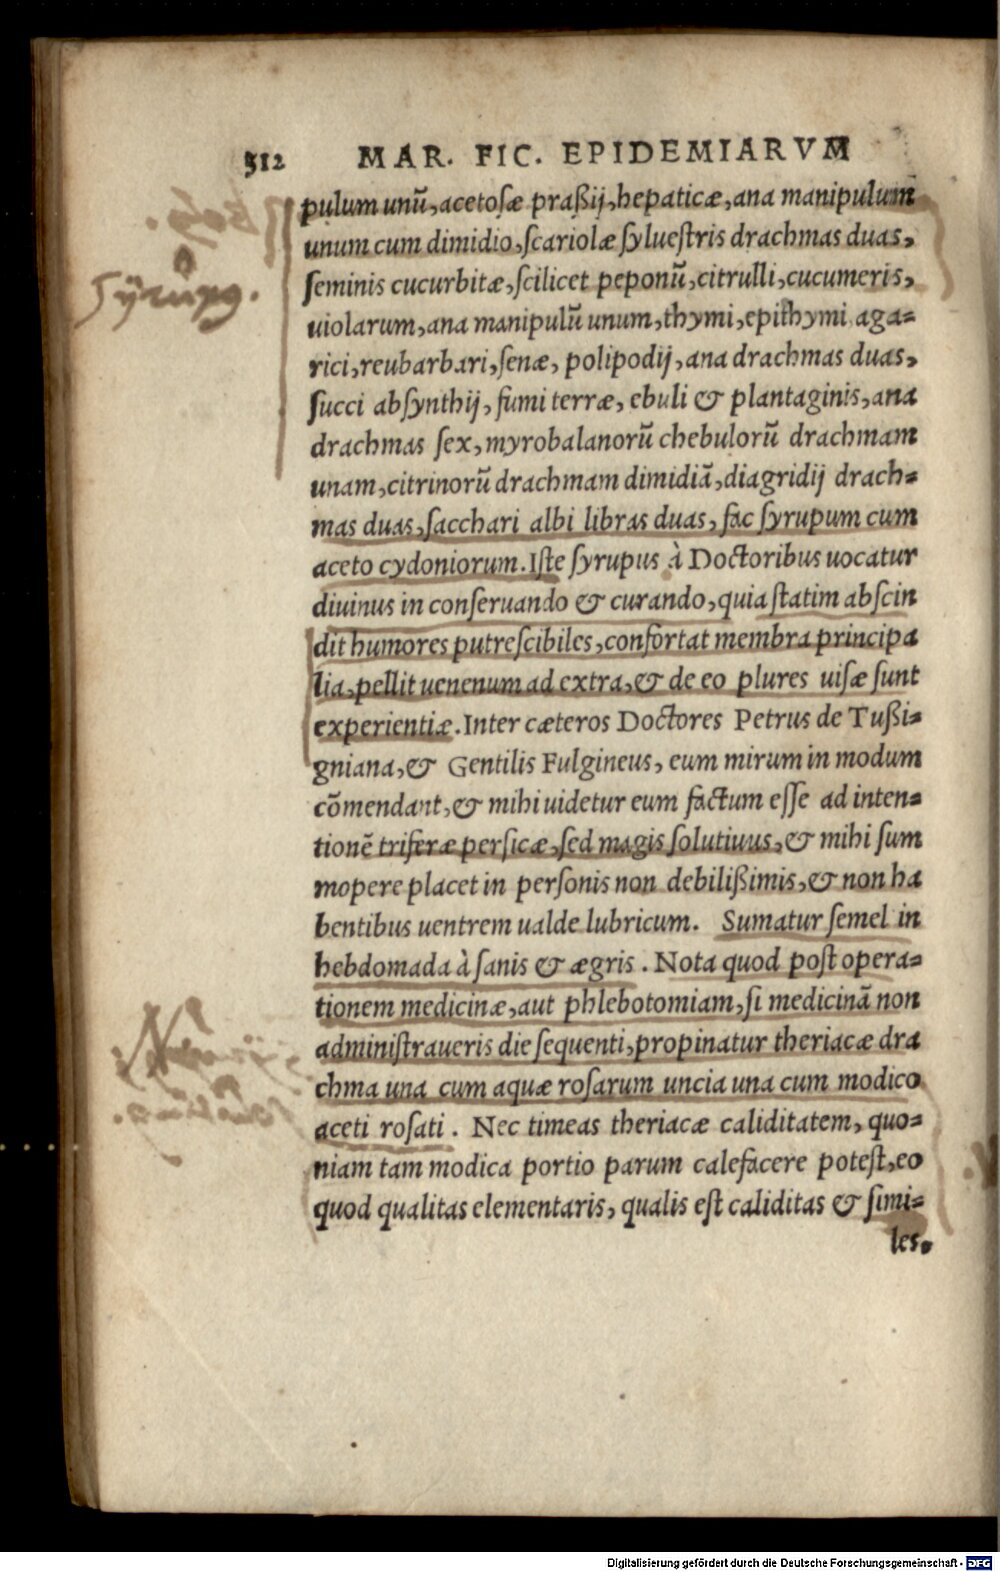 512 MAR. FIC. EPIDEMIARVM
pulum unũ, acetosæ praßij, hepaticæ, ana manipulum
unum cum dimidio, scariolæ syluestris drachmas duas,
Syrupus.
seminis cucurbitæ, scilicet peponũ, citrulli, cucumeris,
uiolarum, ana manipulũ unum, thymi, epithymi aga=
rici, reubarbari, senæ, polipodij, ana drachmas duas,
succi absynthij, fumi terræ, ebuli & plantaginis, ana
drachmas sex, myrobalanorũ chebulorũ drachmam
unam, citrinorũ drachmam dimidiã, diagridij drach=
mas duas, sacchari albi libras duas, fac syrupum cum
aceto cydoniorum. Iste syrupus à Doctoribus uocatur
diuinus in conseruando & curando, quia statim abscin
dit humores putrescibiles, confortat membra principa
lia, pellit uenenum ad extra, & de eo plures uisæ sunt
experientiæ. Inter cæteros Doctores Petrus de Tußi=
gniana, & Gentilis Fulgineus, eum mirum in modum
cõmendant, & mihi uidetur eum factum esse ad inten=
tionẽ triferæ persicæ, sed magis solutiuus, & mihi sum
mopere placet in personis non debilißimis, & non ha
bentibus uentrem ualde lubricum. Sumatur semel in
hebdomada à sanis & ægris. Nota quod post opera=
tionem medicinæ, aut phlebotomiam, si medicinã non
administraueris die sequenti, propinatur theriacæ dra
chma una cum aquæ rosarum uncia una cum modico
aceti rosati. Nec timeas theriacæ caliditatem, quo=
niam tam modica portio parum calefacere potest, eo
quod qualitas elementaris, qualis est caliditas & simi=
les.
Digitalisierung gefördert durch die Deutsche Forschungsgemeinschaft - DFG